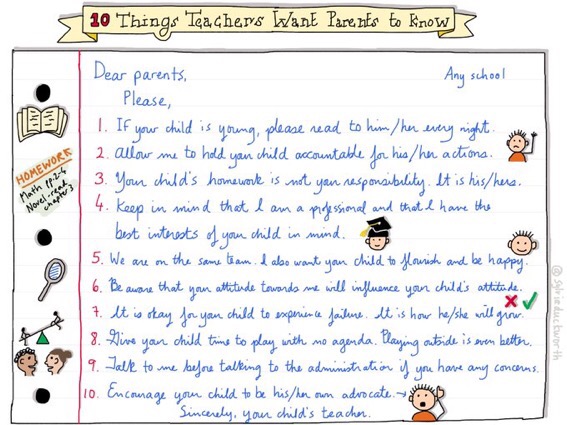 10 Things Teachers Want Parents to Know
Dear parents,
Any school
Please,
1. If your child is young, please read to him/her every night.
2. Allow me to hold your child accountable for his/her actions.
3. Your child's homework is not your responsibility. It is his/hers.
4. Keep in mind that I am a professional and that I have the
best interests of your child in mind.
5. We are on the same team. I also want your child to flourish and be happy.
6. Be aware that your attitude towards me will influence your child's attitude.
7. It is okay for your child to experience failure. It is how he/she will grow.
8. Give your child time to play with no agenda. Playing outside is even better.
9. Talk to me before talking to the administration if you have any concerns.
10. Encourage your child to be his/her own advocate.→
Sincerely, your child's teacher.
HOMEWORK
Math pp. 2-4
Novel-read
chapter 3
@sylviaduckworth